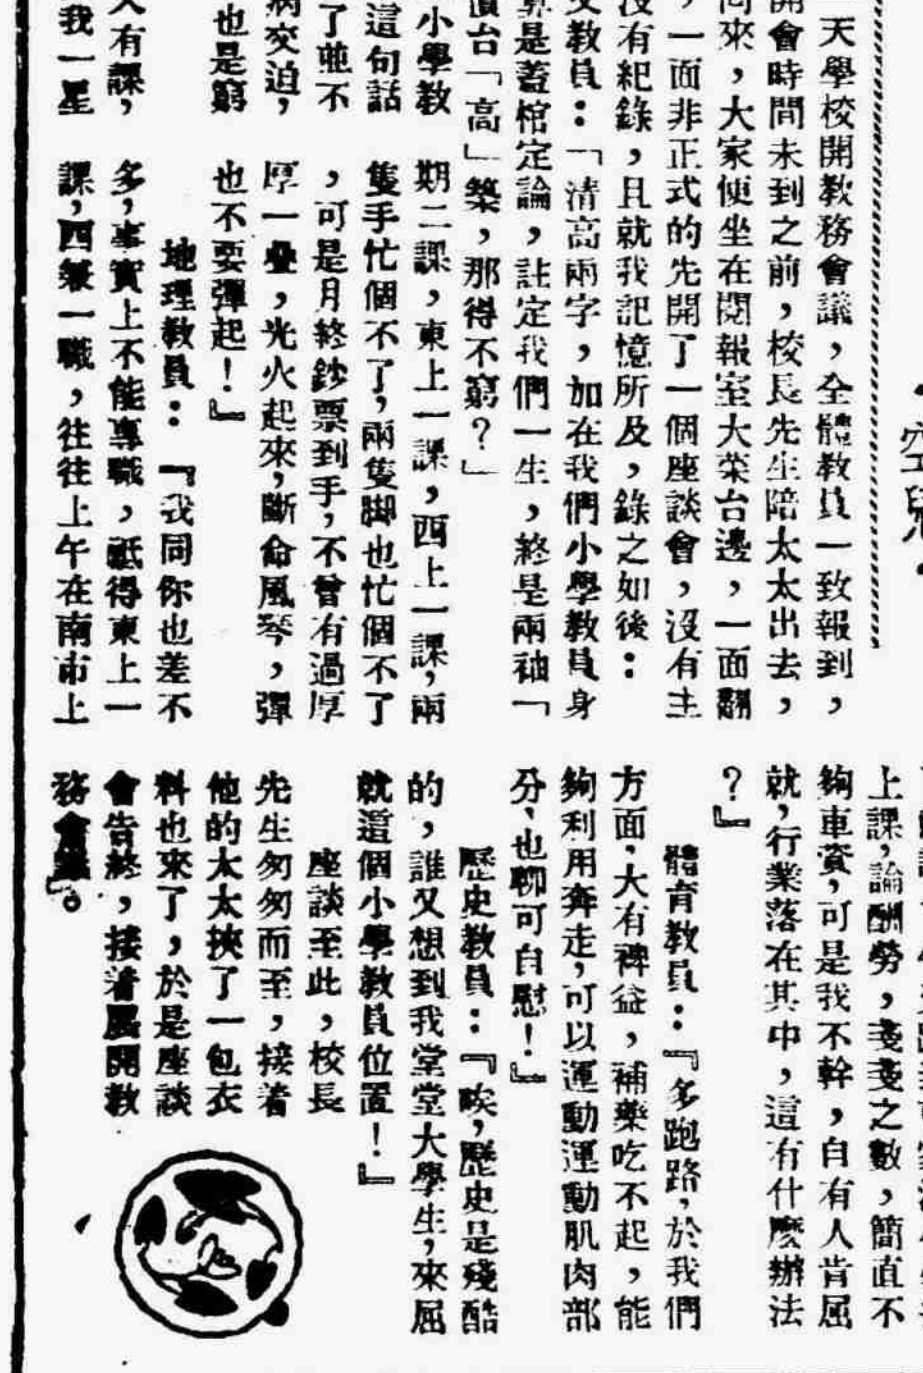 ・空兒・
天學校開教務會議,全體教員一致報到,
開會時間未到之前,校長先生陪太太出去,
回來,大家便坐在閱報室大菜台邊,一面翻
,一面非正式的先開了一個座談會,沒有主
沒有紀錄,且就我記憶所及,錄之如後:
文教員:「清高兩字,加在我們小學教員身
算是蓋棺定論,註定我們一生,終是兩袖「
債台「高」築,那得不窮?」
小學教
這句話
了並不
病交迫,
也是窮
人有課,
我一星
期二課,東上一課,西上一課,兩
隻手忙個不了,兩隻脚也忙個不了
,可是月終鈔票到手,不曾有過厚
厚一疊,光火起來,斷命風琴,彈
也不要彈起!』
地理教員:『我同你也差不
多,事實上不能專職,祗得東上一
課,四兼一職,往往上午在南市上
上課,論酬勞,戔戔之數,簡直不
夠車資,可是我不幹,自有人肯屈
就,行業落在其中,這有什麼辦法
?』
體育教員:『多跑路,於我們
方面,大有裨益,補藥吃不起,能
夠利用奔走,可以運動運動肌肉部
分,也聊可自慰!』
歷史教員:『唉,歷史是殘酷
的,誰又想到我堂堂大學生,來屈
就這個小學教員位置!』
座談至此,校長
先生匆匆而至,接着
他的太太挾了一包衣
料也來了,於是座談
會告終,接着展開教
務會議』。